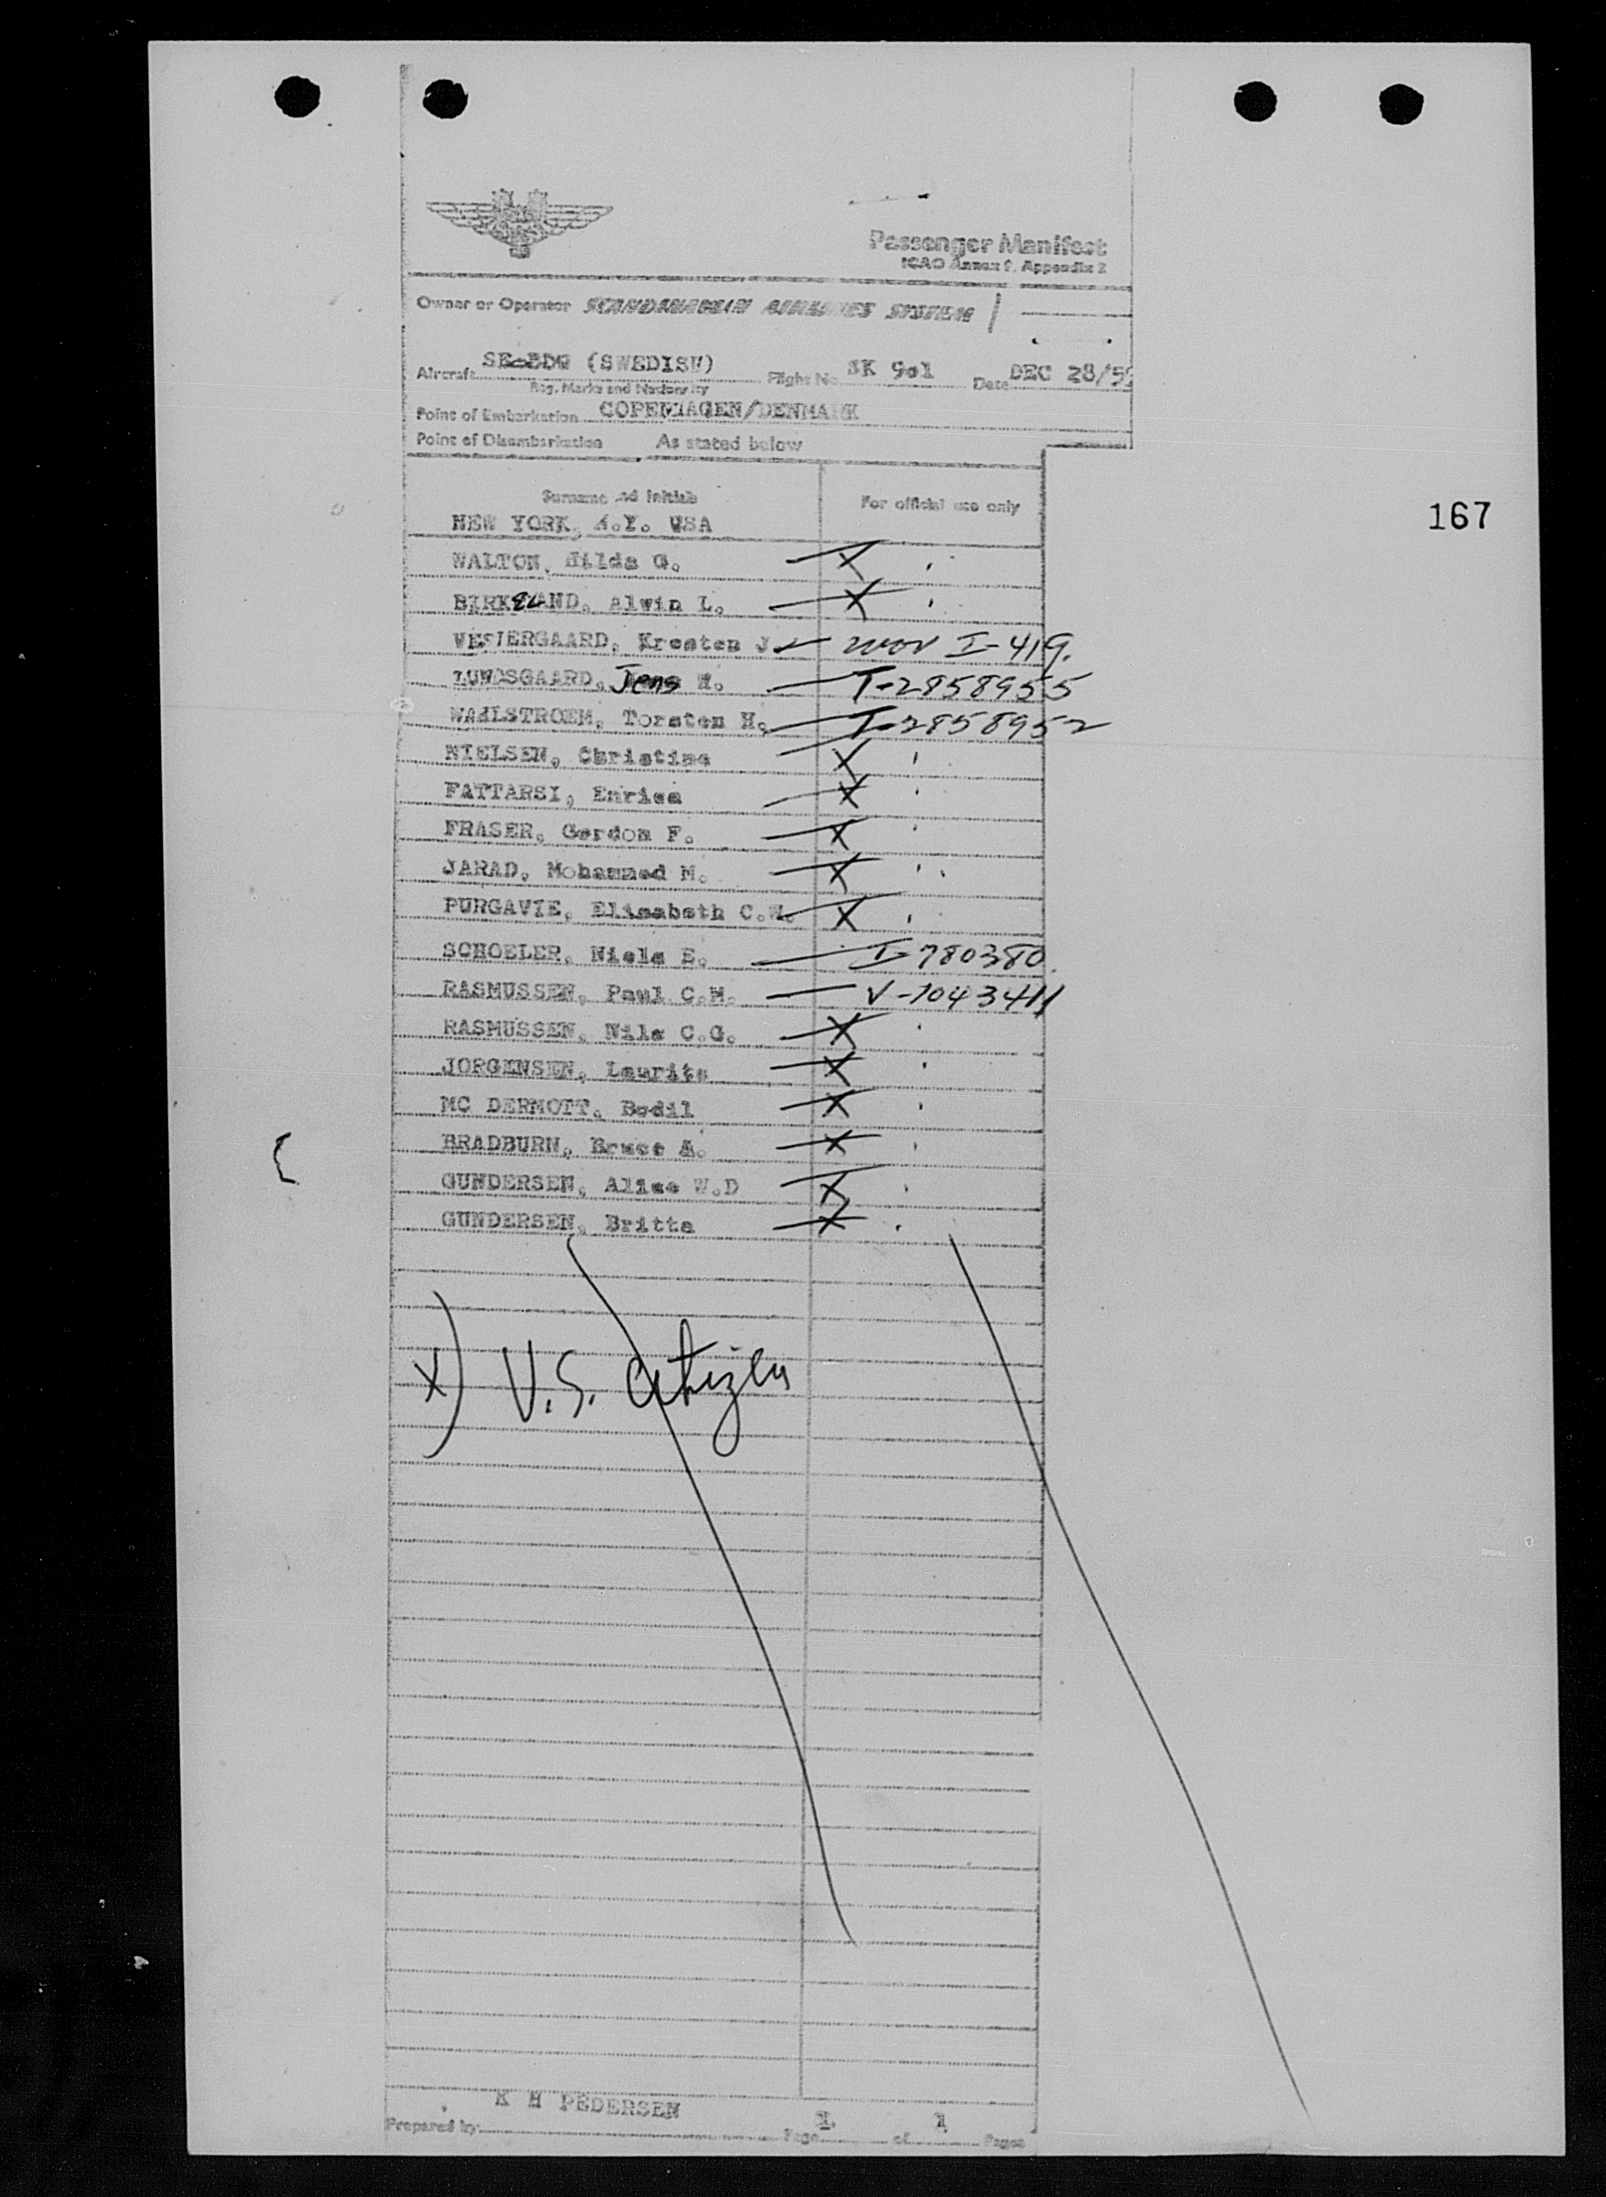 Passenger Manifest
ICAO Annex 9, Appendix 2
Owner or Operator SCANDANAVIAN AIRLINES SYSTEM
Aircraft SE-BDG (SWEDISH) Flight No. SK 901 Date DEC 28/5
Reg. Marks and Nationality
Point of Embarkation COPENHAGEN/DENMARK
Point of Disembarkation As stated below
Surname and initials For official use only
NEW YORK, N.Y. USA
167
WALTON, Hilda G. X
BIRKELAND, Alwin L. X
VESTERGAARD, Kresten J. I-419.
LUNDSGAARD, Jens H. T-2858955
WAHLSTROEM, Torsten H. T-2858952
NIELSEN, Christine X
FATTARSI, Enrica X
FRASER, Gordon F. X
JARAD, Mohammed M. X
PURGAVIE, Elisabeth C.W. X
SCHOELER, Niels E. I-780380
RASMUSSEN, Paul C.M. V-1043411
RASMUSSEN, Nils C.G. X
JORGENSEN, Laurits X
MC DERMOTT, Bodil X
BRADBURN, Bruce A. X
GUNDERSEN, Alice W.D X
GUNDERSEN, Britta X
x) U.S. citizen
K H PEDERSEN
Prepared by Page 1 of 1 Pages